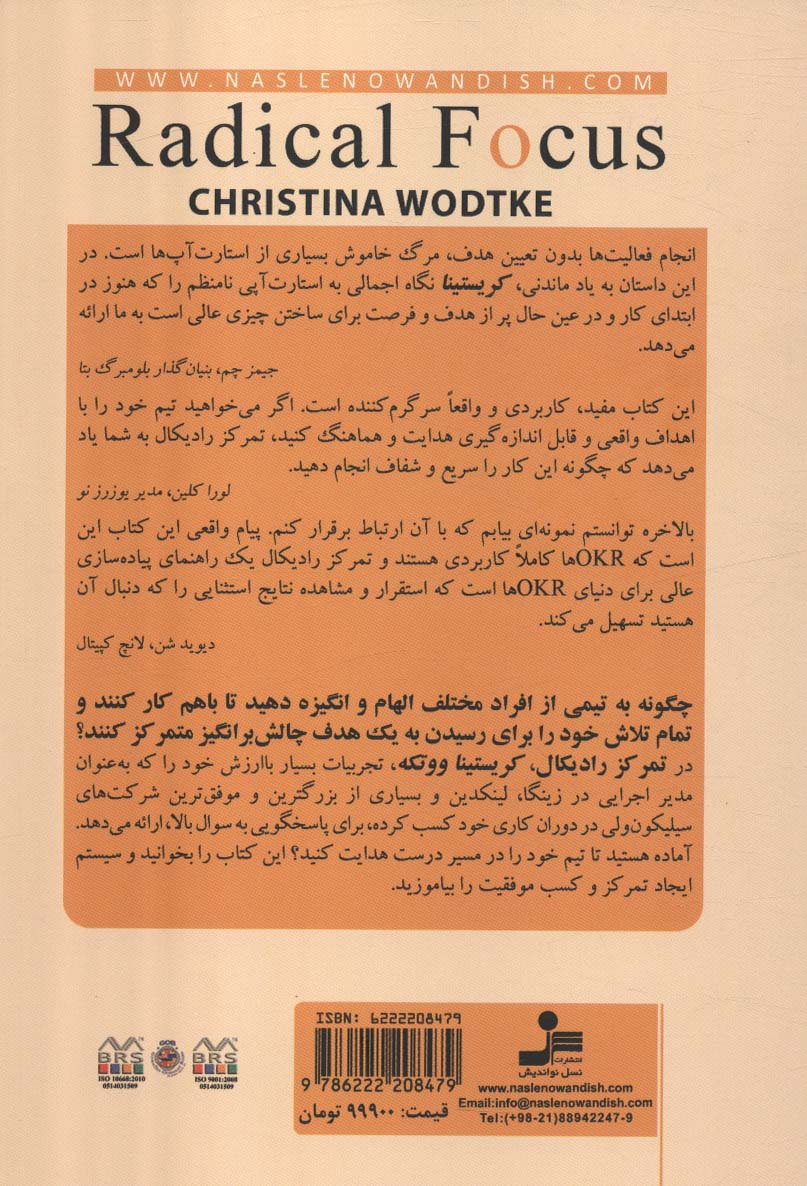 WWW.NASLENOWANDISH.COM
Radical Focus
CHRISTINA WODTKE
انجام فعالیت‌ها بدون تعیین هدف، مرگ خاموش بسیاری از استارت‌آپ‌ها است. در
این داستان به یاد ماندنی، کریستینا نگاه اجمالی به استارت‌آپی نامنظم را که هنوز در
ابتدای کار و در عین حال پر از هدف و فرصت برای ساختن چیزی عالی است به ما ارائه
می‌دهد.
جیمز چم، بنیان‌گذار بلومبرگ بتا
این کتاب مفید، کاربردی و واقعاً سرگرم‌کننده است. اگر می‌خواهید تیم خود را با
اهداف واقعی و قابل اندازه‌گیری هدایت و هماهنگ کنید، تمرکز رادیکال به شما یاد
می‌دهد که چگونه این کار را سریع و شفاف انجام دهید.
لورا کلین، مدیر یوزرز نو
بالاخره توانستم نمونه‌ای بیابم که با آن ارتباط برقرار کنم. پیام واقعی این کتاب این
است که OKRها کاملاً کاربردی هستند و تمرکز رادیکال یک راهنمای پیاده‌سازی
عالی برای دنیای OKRها است که استقرار و مشاهده نتایج استثنایی را که دنبال آن
هستید تسهیل می‌کند.
دیوید شن، لانچ کپیتال
چگونه به تیمی از افراد مختلف الهام و انگیزه دهید تا باهم کار کنند و
تمام تلاش خود را برای رسیدن به یک هدف چالش‌برانگیز متمرکز کنند؟
در تمرکز رادیکال، کریستینا ووتکه، تجربیات بسیار باارزش خود را که به‌عنوان
مدیر اجرایی در زینگا، لینکدین و بسیاری از بزرگترین و موفق‌ترین شرکت‌های
سیلیکون‌ولی در دوران کاری خود کسب کرده، برای پاسخگویی به سوال بالا، ارائه می‌دهد.
آماده هستید تا تیم خود را در مسیر درست هدایت کنید؟ این کتاب را بخوانید و سیستم
ایجاد تمرکز و کسب موفقیت را بیاموزید.
BRS
ISO 10668:2010
0514031509
BRS
ISO 9001:2008
0514031509
ISBN: 6222208479
9 786222 208479
قیمت: ۹۹۹۰۰ تومان
انتشارات
نسل نواندیش
www.naslenowandish.com
Email:info@naslenowandish.com
Tel:(+98-21)88942247-9